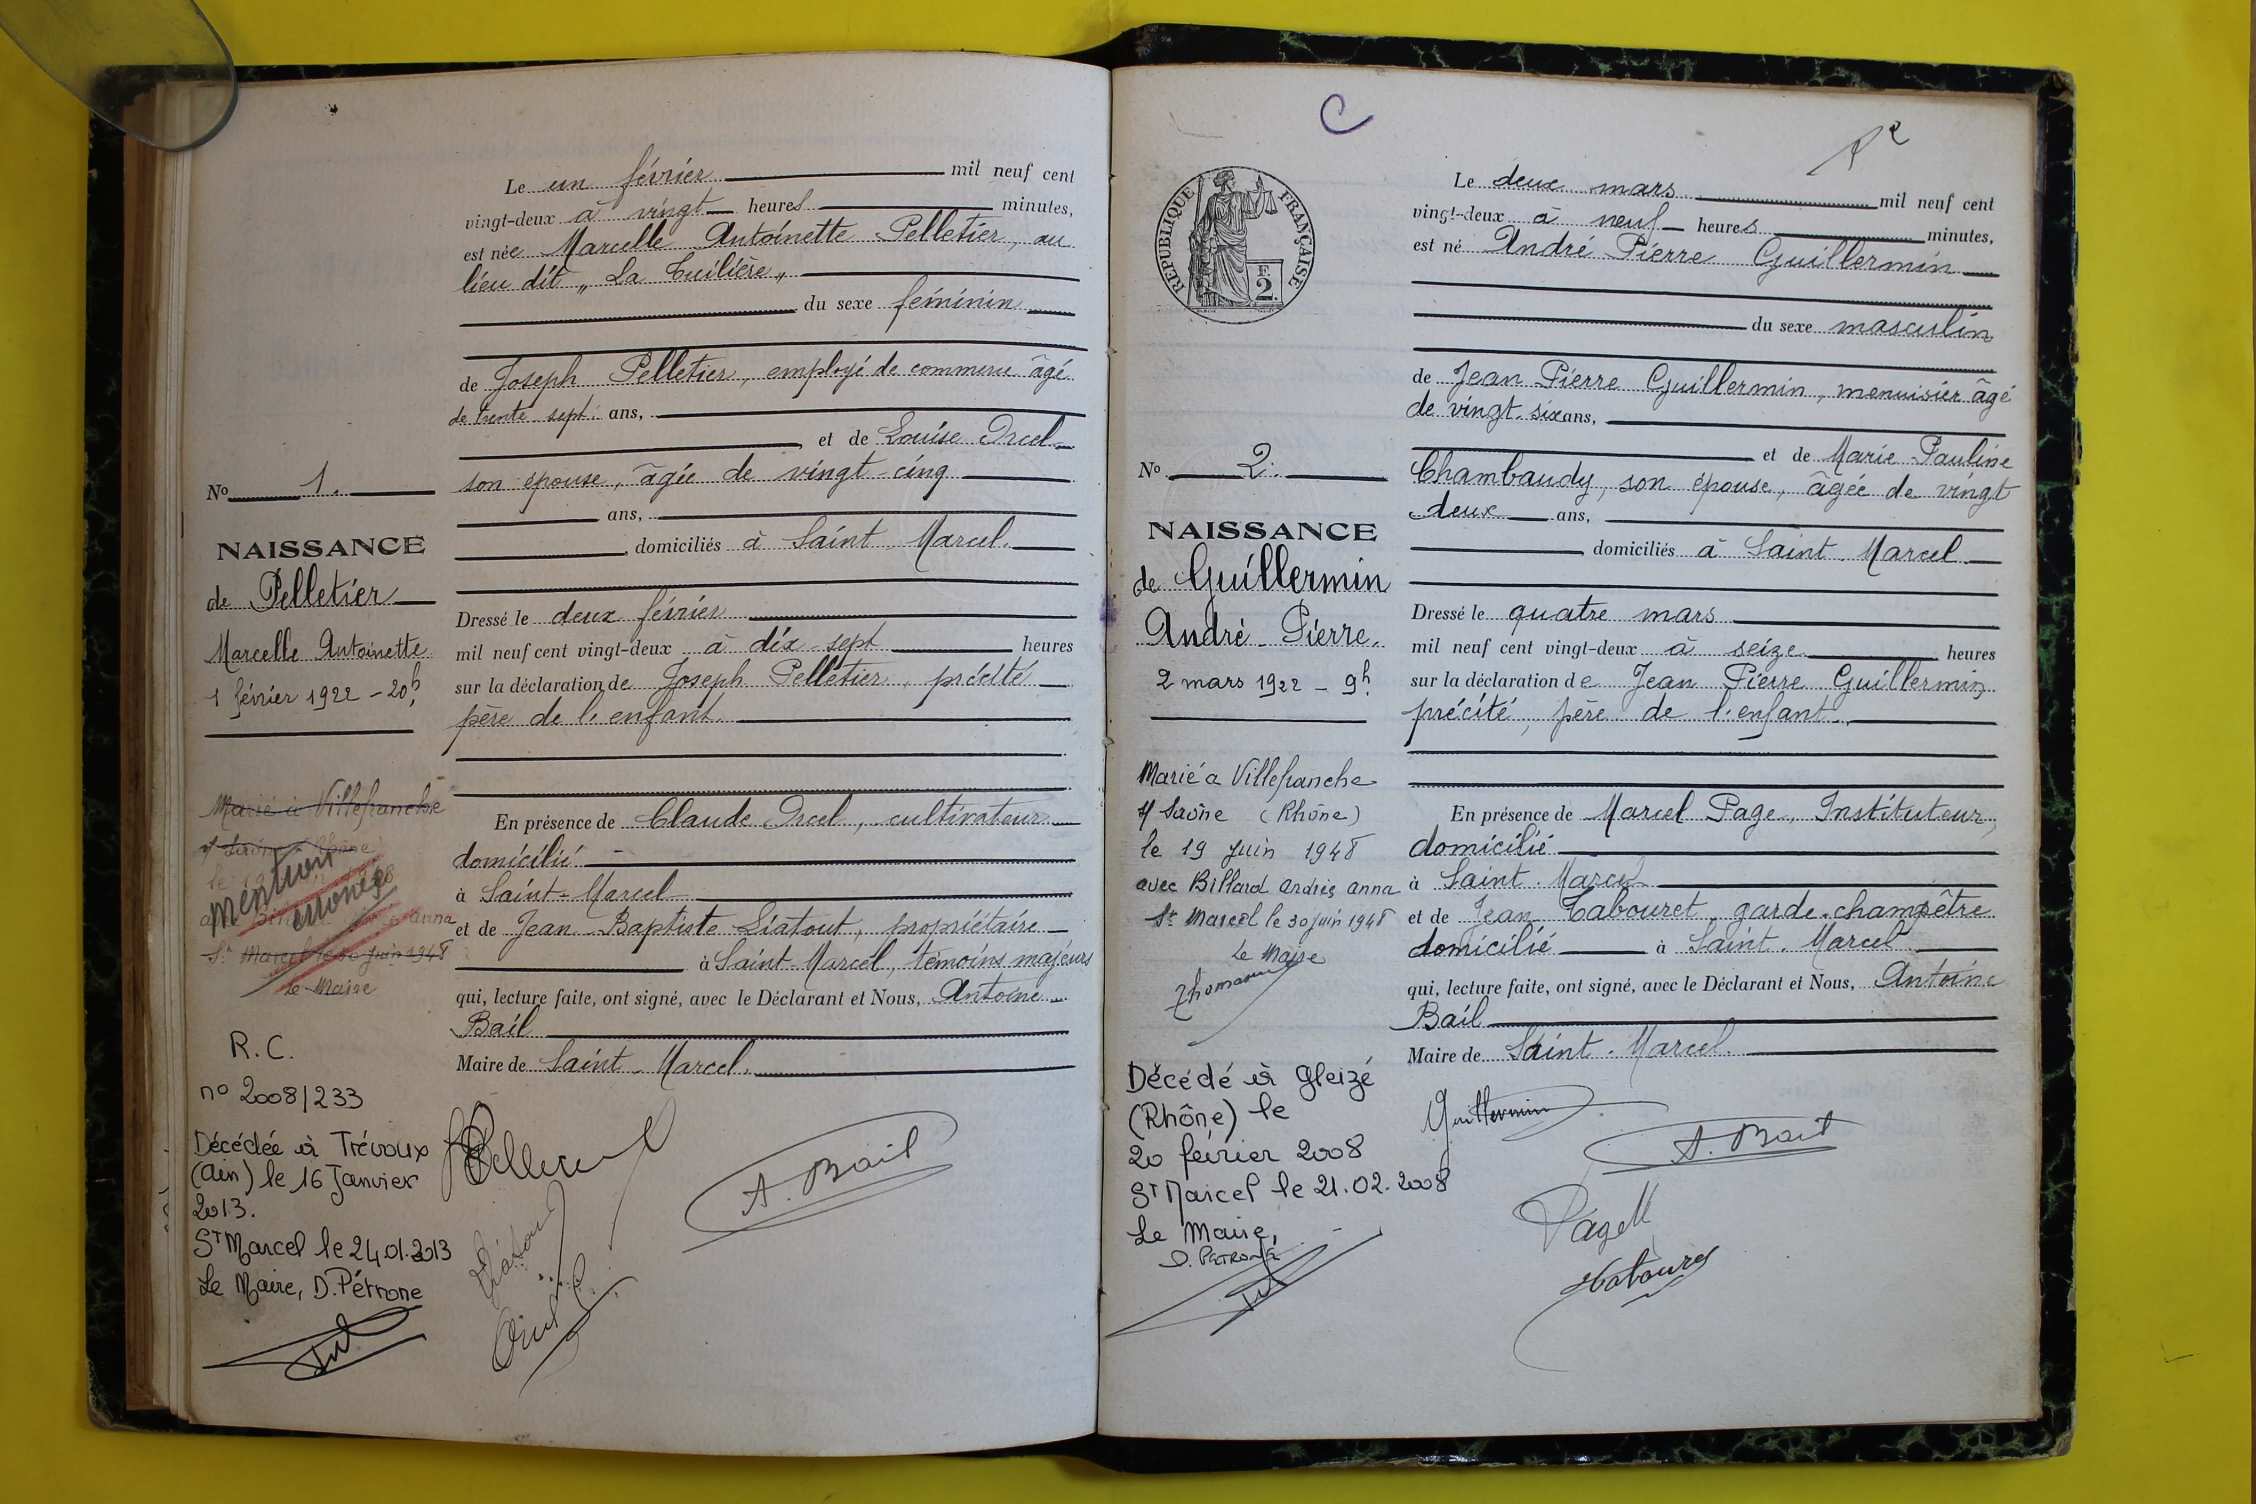 Le un février mil neuf cent
vingt-deux à vingt heures minutes,
est née Marcelle Antoinette Pelletier, au
lieu dit "La Tuilière"
du sexe féminin
de Joseph Pelletier, employé de commerce âgé
de trente sept ans,
et de Louise Orcel
son épouse, âgée de vingt-cinq
ans,
domiciliés à Saint Marcel.
Dressé le deux février
mil neuf cent vingt-deux à dix-sept heures
sur la déclaration de Joseph Pelletier, précité
père de l'enfant
En présence de Claude Orcel, cultivateur
domicilié
à Saint-Marcel
et de Jean-Baptiste Liatout, propriétaire
à Saint-Marcel, témoins majeurs
qui, lecture faite, ont signé, avec le Déclarant et Nous, Antoine
Bail
Maire de Saint-Marcel.
A. Bail
No 1.
NAISSANCE
de Pelletier
Marcelle Antoinette
1 février 1922 - 20h
Marié à Villefranche
s/ Saône (Rhône)
mention
erronée
Anna
St Marcel le 30 juin 1948
Le Maire
R.C.
no 2008/233
Décédée à Trévoux
(Ain) le 16 Janvier
2013.
ST Marcel le 24.01.2013
Le Maire, D. Pétrone
C
RÉPUBLIQUE FRANÇAISE
F.
2.
Le deux mars mil neuf cent
vingt-deux à neuf heures minutes,
est né André Pierre Guillermin
du sexe masculin
de Jean Pierre Guillermin, menuisier âgé
de vingt-six ans,
et de Marie Pauline
Chambaudy, son épouse, âgée de vingt
deux ans,
domiciliés à Saint-Marcel
Dressé le quatre mars
mil neuf cent vingt-deux à seize heures
sur la déclaration de Jean Pierre Guillermin
précité, père de l'enfant
En présence de Marcel Page, Instituteur,
domicilié
à Saint-Marcel
et de Jean Tabouret, garde-champêtre
domicilié à Saint-Marcel
qui, lecture faite, ont signé, avec le Déclarant et Nous, Antoine
Bail
Maire de Saint-Marcel.
Guillermin
A. Bail
Page M
Tabouret
No 2.
NAISSANCE
de Guillermin
André-Pierre.
2 mars 1922 - 9h
Marié à Villefranche
s/ Saône (Rhône)
le 19 juin 1948
avec Billard Andrée Anna
St Marcel le 30 juin 1948
Le Maire
Décédé à Gleizé
(Rhône) le
20 février 2008
ST Marcel le 21.02.2008
Le Maire,
D. PETRONE